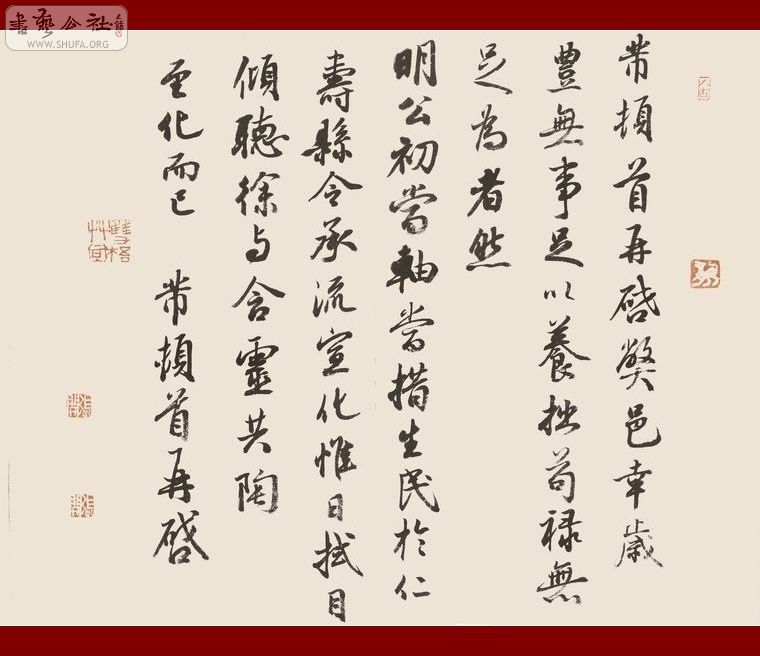 書藝公社
WWW.SHUFA.ORG
芾頓首再啓弊邑幸歲
豊無事足以養拙苟禄無
足為者然
明公初當軸當措生民於仁
壽縣令承流宣化惟日拭目
傾聽徐与含靈共陶
至化而已 芾頓首再啓